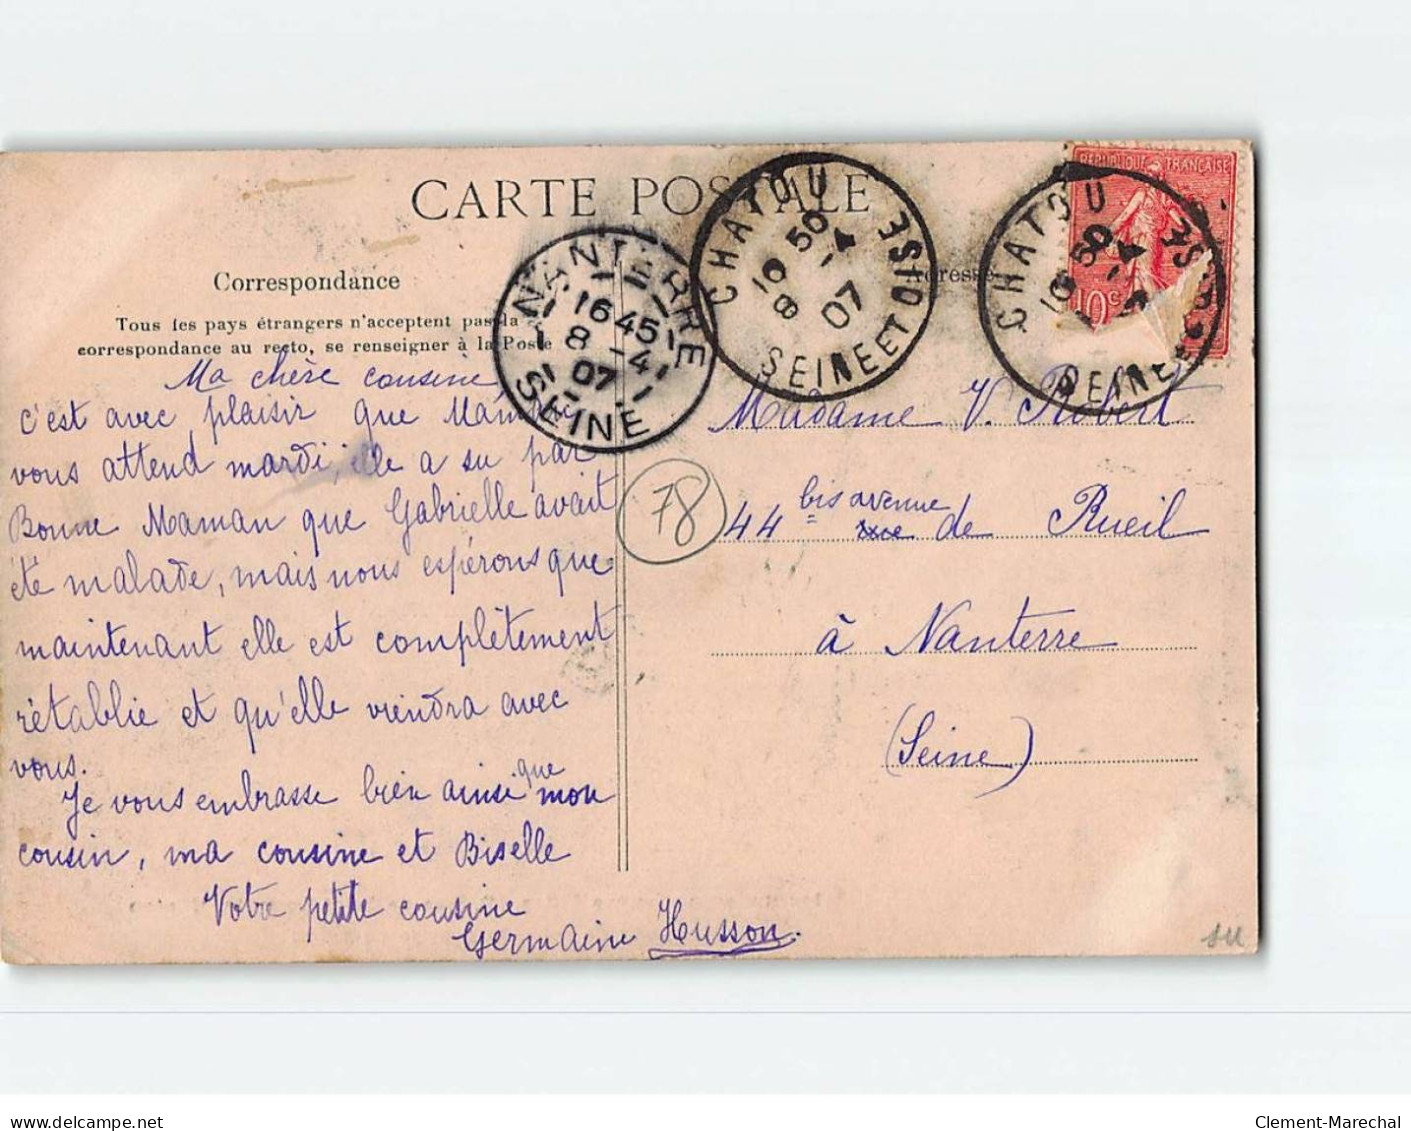 CARTE POSTALE
Correspondance
Tous les pays étrangers n'acceptent pas la
correspondance au recto, se renseigner à la Poste
Adresse
NANTERRE
16 45
8 -4
07
SEINE
CHATOU
10 50
8 -4
07
SEINE ET OISE
CHATOU
10 50
SEINE
OISE
REPUBLIQUE FRANÇAISE
10c
Ma chère cousine
c'est avec plaisir que Maman
vous attend mardi, elle a su par
Bonne Maman que Gabrielle avait
été malade, mais nous espérons que
maintenant elle est complètement
rétablie et qu'elle viendra avec
vous.
Je vous embrasse bien ainsi que mon
cousin, ma cousine et Biselle
Votre petite cousine
Germaine Husson.
78
Madame V. Robert
44 bis avenue rue de Rueil
à Nanterre
(Seine)
Clement-Marechal
delcampe.net